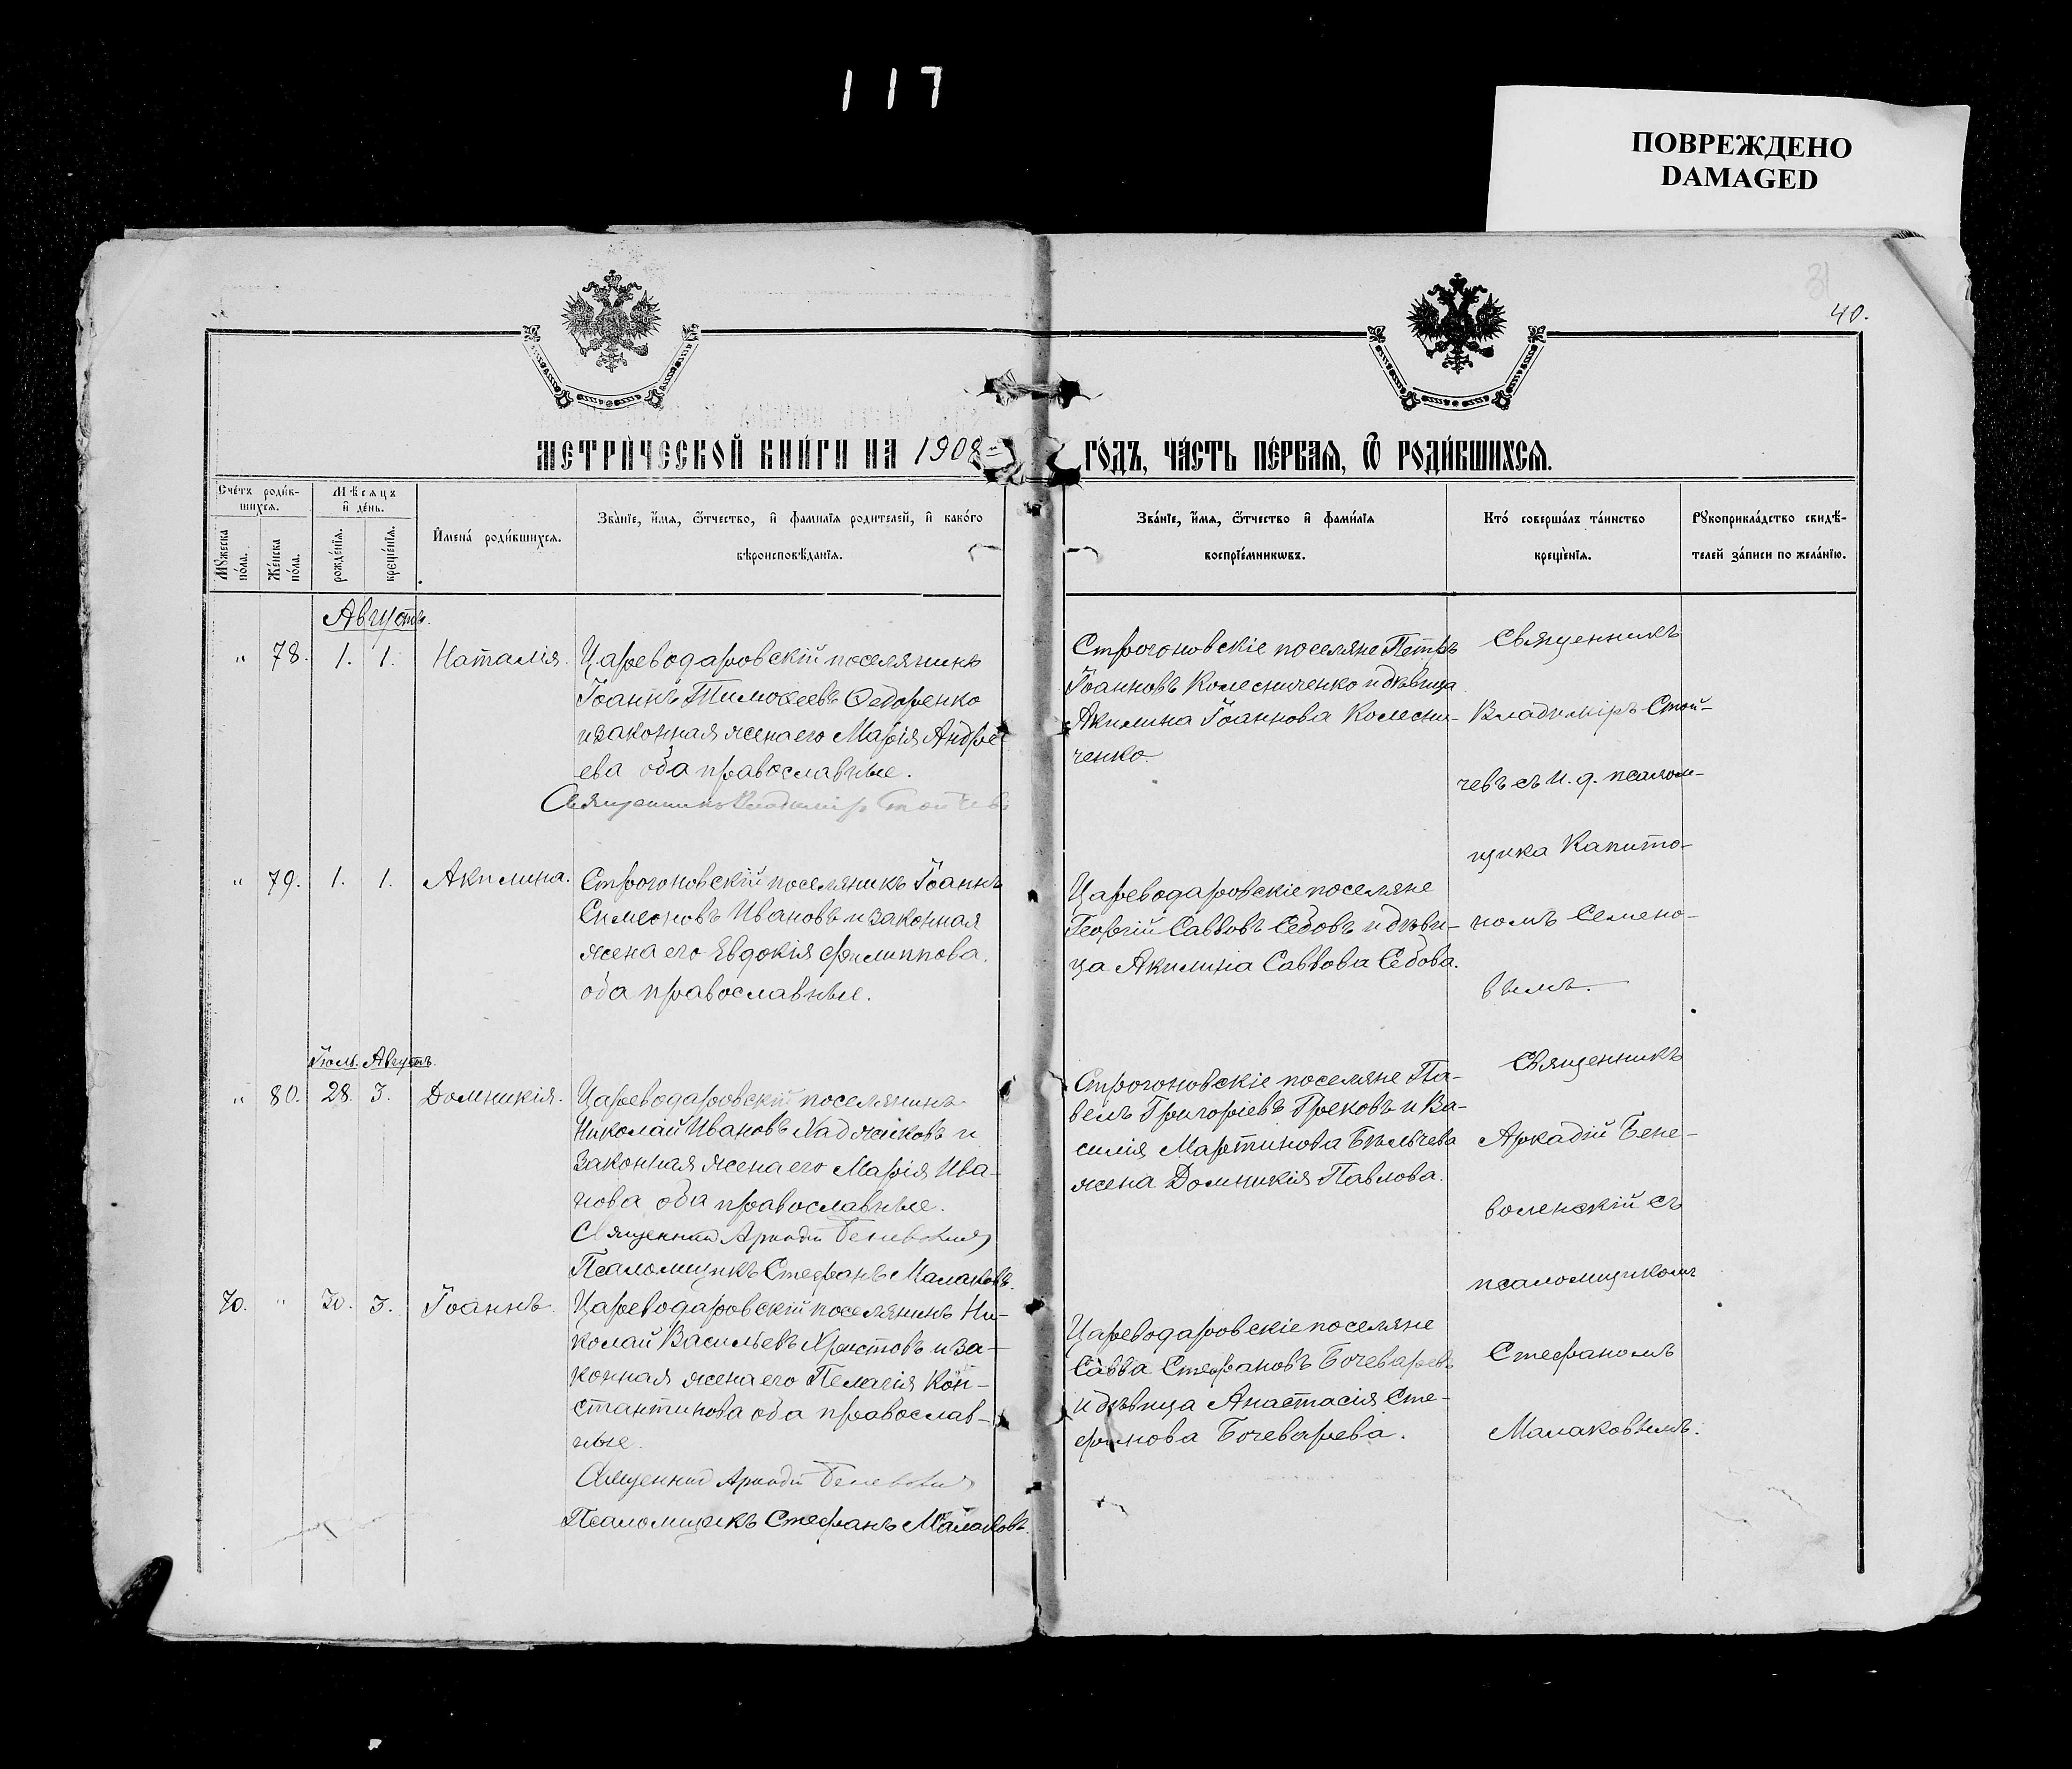 117
ПОВРЕЖДЕНО
DAMAGED
40.
МЕТРИЧЕСКОЙ КНИГИ НА 1908
ГОДЪ, ЧАСТЬ ПЕРВАЯ, Ѿ РОДИВШИХСЯ.
Счетъ родив-
шихся.
Мужеска
пола.
Женска
пола.
Мѣсяцъ
и день.
рожденія.
крещенія.
Имена родившихся.
Званіе, имя, ѿчество, и фамилія родителей, и какого
вѣроисповѣданія.
Званіе, имя, ѿчество и фамилія
воспріемниковъ.
Кто совершалъ таинство
крещенія.
Рукоприкладство свидѣ-
телей записи по желанію.
Августъ.
" 78. 1. 1. Наталія.
Цареводаровскій поселянинъ
Іоаннъ Тимоѳеевъ Ѳедоренко
и законная жена его Марія Андре
ева оба православные.
Священникъ Владиміръ Стойчевъ
Строгоновскіе поселяне Петръ
Іоанновъ Колесниченко и дѣвица
Акилина Іоаннова Колесни-
ченко.
Священникъ
Владиміръ Стой-
чевъ съ и. д. псалом-
щика Капито-
номъ Семено-
вымъ.
" 79. 1. 1. Акилина.
Строгоновскій поселяникъ Іоаннъ
Симеоновъ Ивановъ и законная
жена его Евдокія Филиппова.
оба православные.
Цареводаровскіе поселяне
Георгій Саввовъ Сѣдовъ и дѣви-
ца Акилина Саввова Сѣдова.
Іюль. Августъ.
" 80. 28. 3. Домникія.
Цареводаровскій поселянинъ
Николай Ивановъ Хаджиковъ и
законная жена его Марія Ива-
нова оба православные.
Священникъ Аркадій Беневоленскій
Псаломщикъ Стефанъ Малаковъ.
Строгоновскіе поселяне Па-
велъ Григоріевъ Грековъ и Ва-
силія Мартинова Бѣльчева
жена Домникія Павлова.
Священникъ
Аркадій Бене-
воленскій съ
псаломщикомъ
Стефаномъ
Малаковымъ.
70. " 30. 3. Іоаннъ.
Цареводаровскій поселянинъ Ни-
колай Васильевъ Христовъ и за-
конная жена его Пелагія Кон-
стантинова оба православ-
ные.
Священникъ Аркадій Беневоленскій
Псаломщикъ Стефанъ Малаковъ.
Цареводаровскіе поселяне
Савва Стефановъ Бочеваревъ
и дѣвица Анастасія Сте-
фанова Бочеварева.